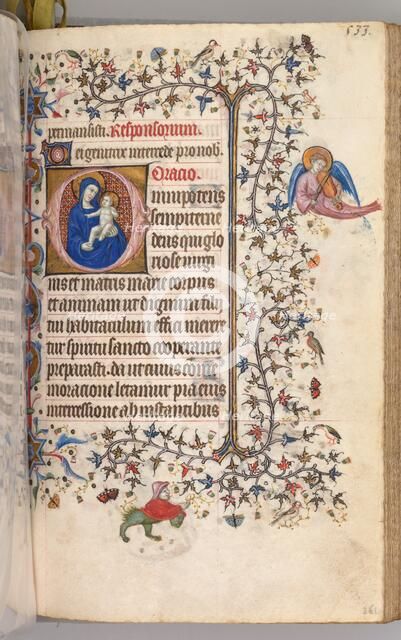 533.
permansisti. Responsorium.
Dei genitrix intercede pro nob.
Oracio.
Omnipotens
sempiterne
deus qui glo
riose virgi
nis et matris marie corpus
et animam ut dignum filii
tui habitaculum effici mere
tur spiritu sancto cooperante
preparasti. da ut cuius come
moracione letamur pia eius
intercessione ab instantibus
261